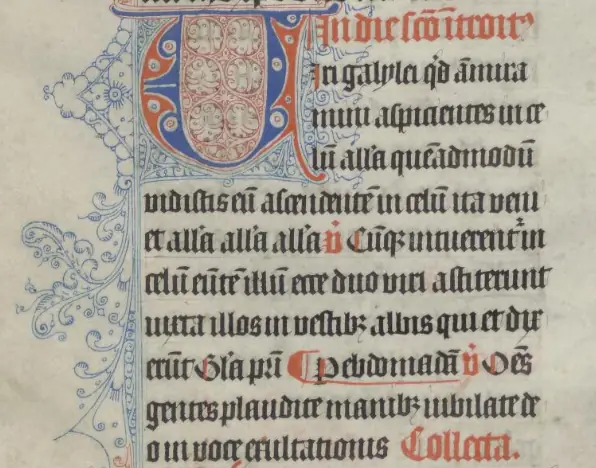 In die scō ītroit9
Viri galylei qd āmira
mini aspicientes in ce
lū allā quēadmodū
vidistis eū ascendentē in celū ita veni
et allā allā allā v̄ Cūq; intuerent᷑ in
celū eūtē illū ecce duo viri astiterunt
iuxta illos in vestib; albis qui et dix
erūt Glā pri ¶ P ebdomadā v̄ Oēs
gentes plaudite manib; iubilate de
o in voce exultationis Collecta.